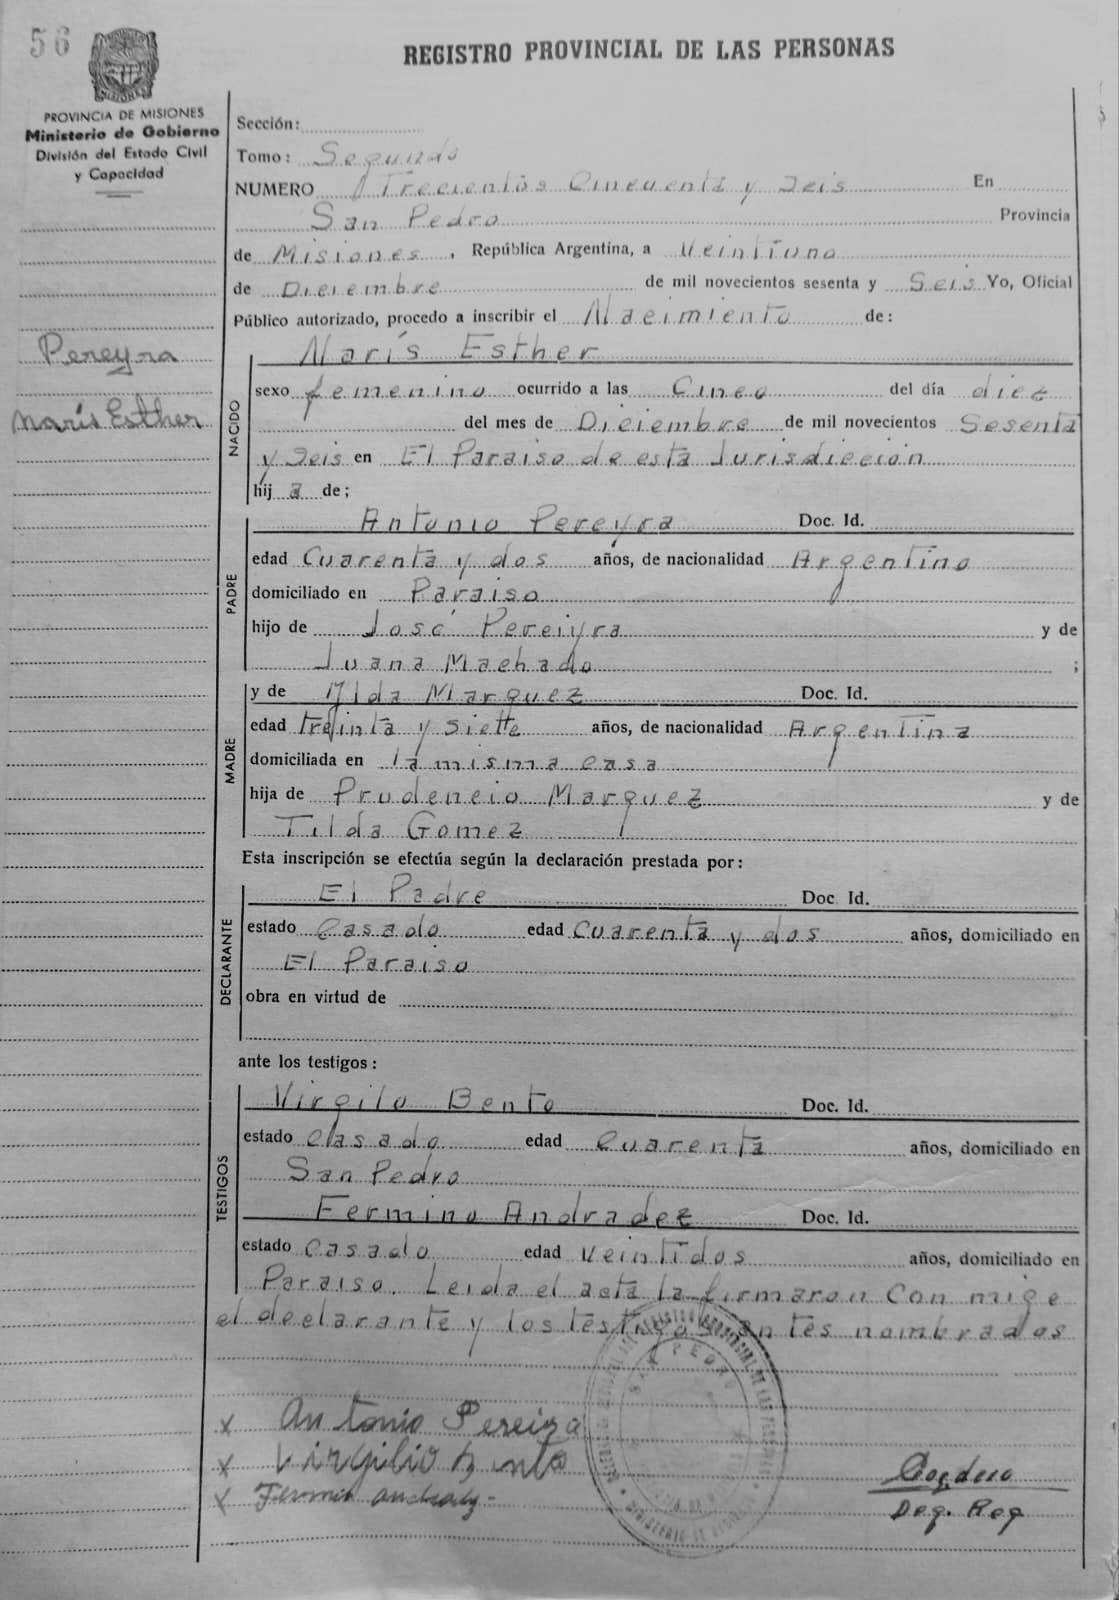 56
REGISTRO PROVINCIAL DE LAS PERSONAS
PROVINCIA DE MISIONES
Ministerio de Gobierno
División del Estado Civil
y Capacidad
Sección:
Tomo: Segundo
NUMERO Trecientos Cincuenta y Seis En
San Pedro Provincia
de Misiones, República Argentina, a Veintiuno
de Diciembre de mil novecientos sesenta y Seis Yo, Oficial
Público autorizado, procedo a inscribir el Nacimiento de:
Pereyra
Marís Esther
NACIDO
Marís Esther
sexo femenino ocurrido a las Cinco del día diez
del mes de Diciembre de mil novecientos Sesenta
y Seis en El Paraiso de esta Jurisdiccion
hija de;
PADRE
Antonio Pereyra Doc. Id.
edad Cuarenta y dos años, de nacionalidad Argentino
domiciliado en Paraiso
hijo de José Pereiyra y de
Juana Machado ;
MADRE
y de Alda Marquez Doc. Id.
edad treinta y siette años, de nacionalidad Argentina
domiciliada en la misma casa
hija de Prudencio Marquez y de
Tilda Gomez
Esta inscripción se efectúa según la declaración prestada por:
DECLARANTE
El Padre Doc. Id.
estado Casado edad Cuarenta y dos años, domiciliado en
El Paraiso
obra en virtud de
ante los testigos:
TESTIGOS
Virgilo Bento Doc. Id.
estado Casado edad Cuarenta años, domiciliado en
San Pedro
Fermino Andradez Doc. Id.
estado Casado edad Veintidos años, domiciliado en
Paraiso. Leida el acta la firmaron Con migo
el declarante y los testigos antes nombrados
SAN PEDRO
x Antonio Pereira
x Virgilio Bento
x Fermin
Deg. Reg